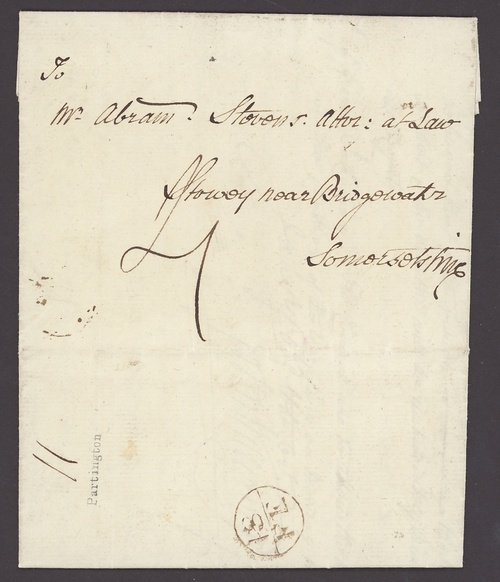 To
Mr. Abram. Stevens. Attor: at Law
Stowey near Bridgewater
Somersetshire
4
11
Partington
18
FE